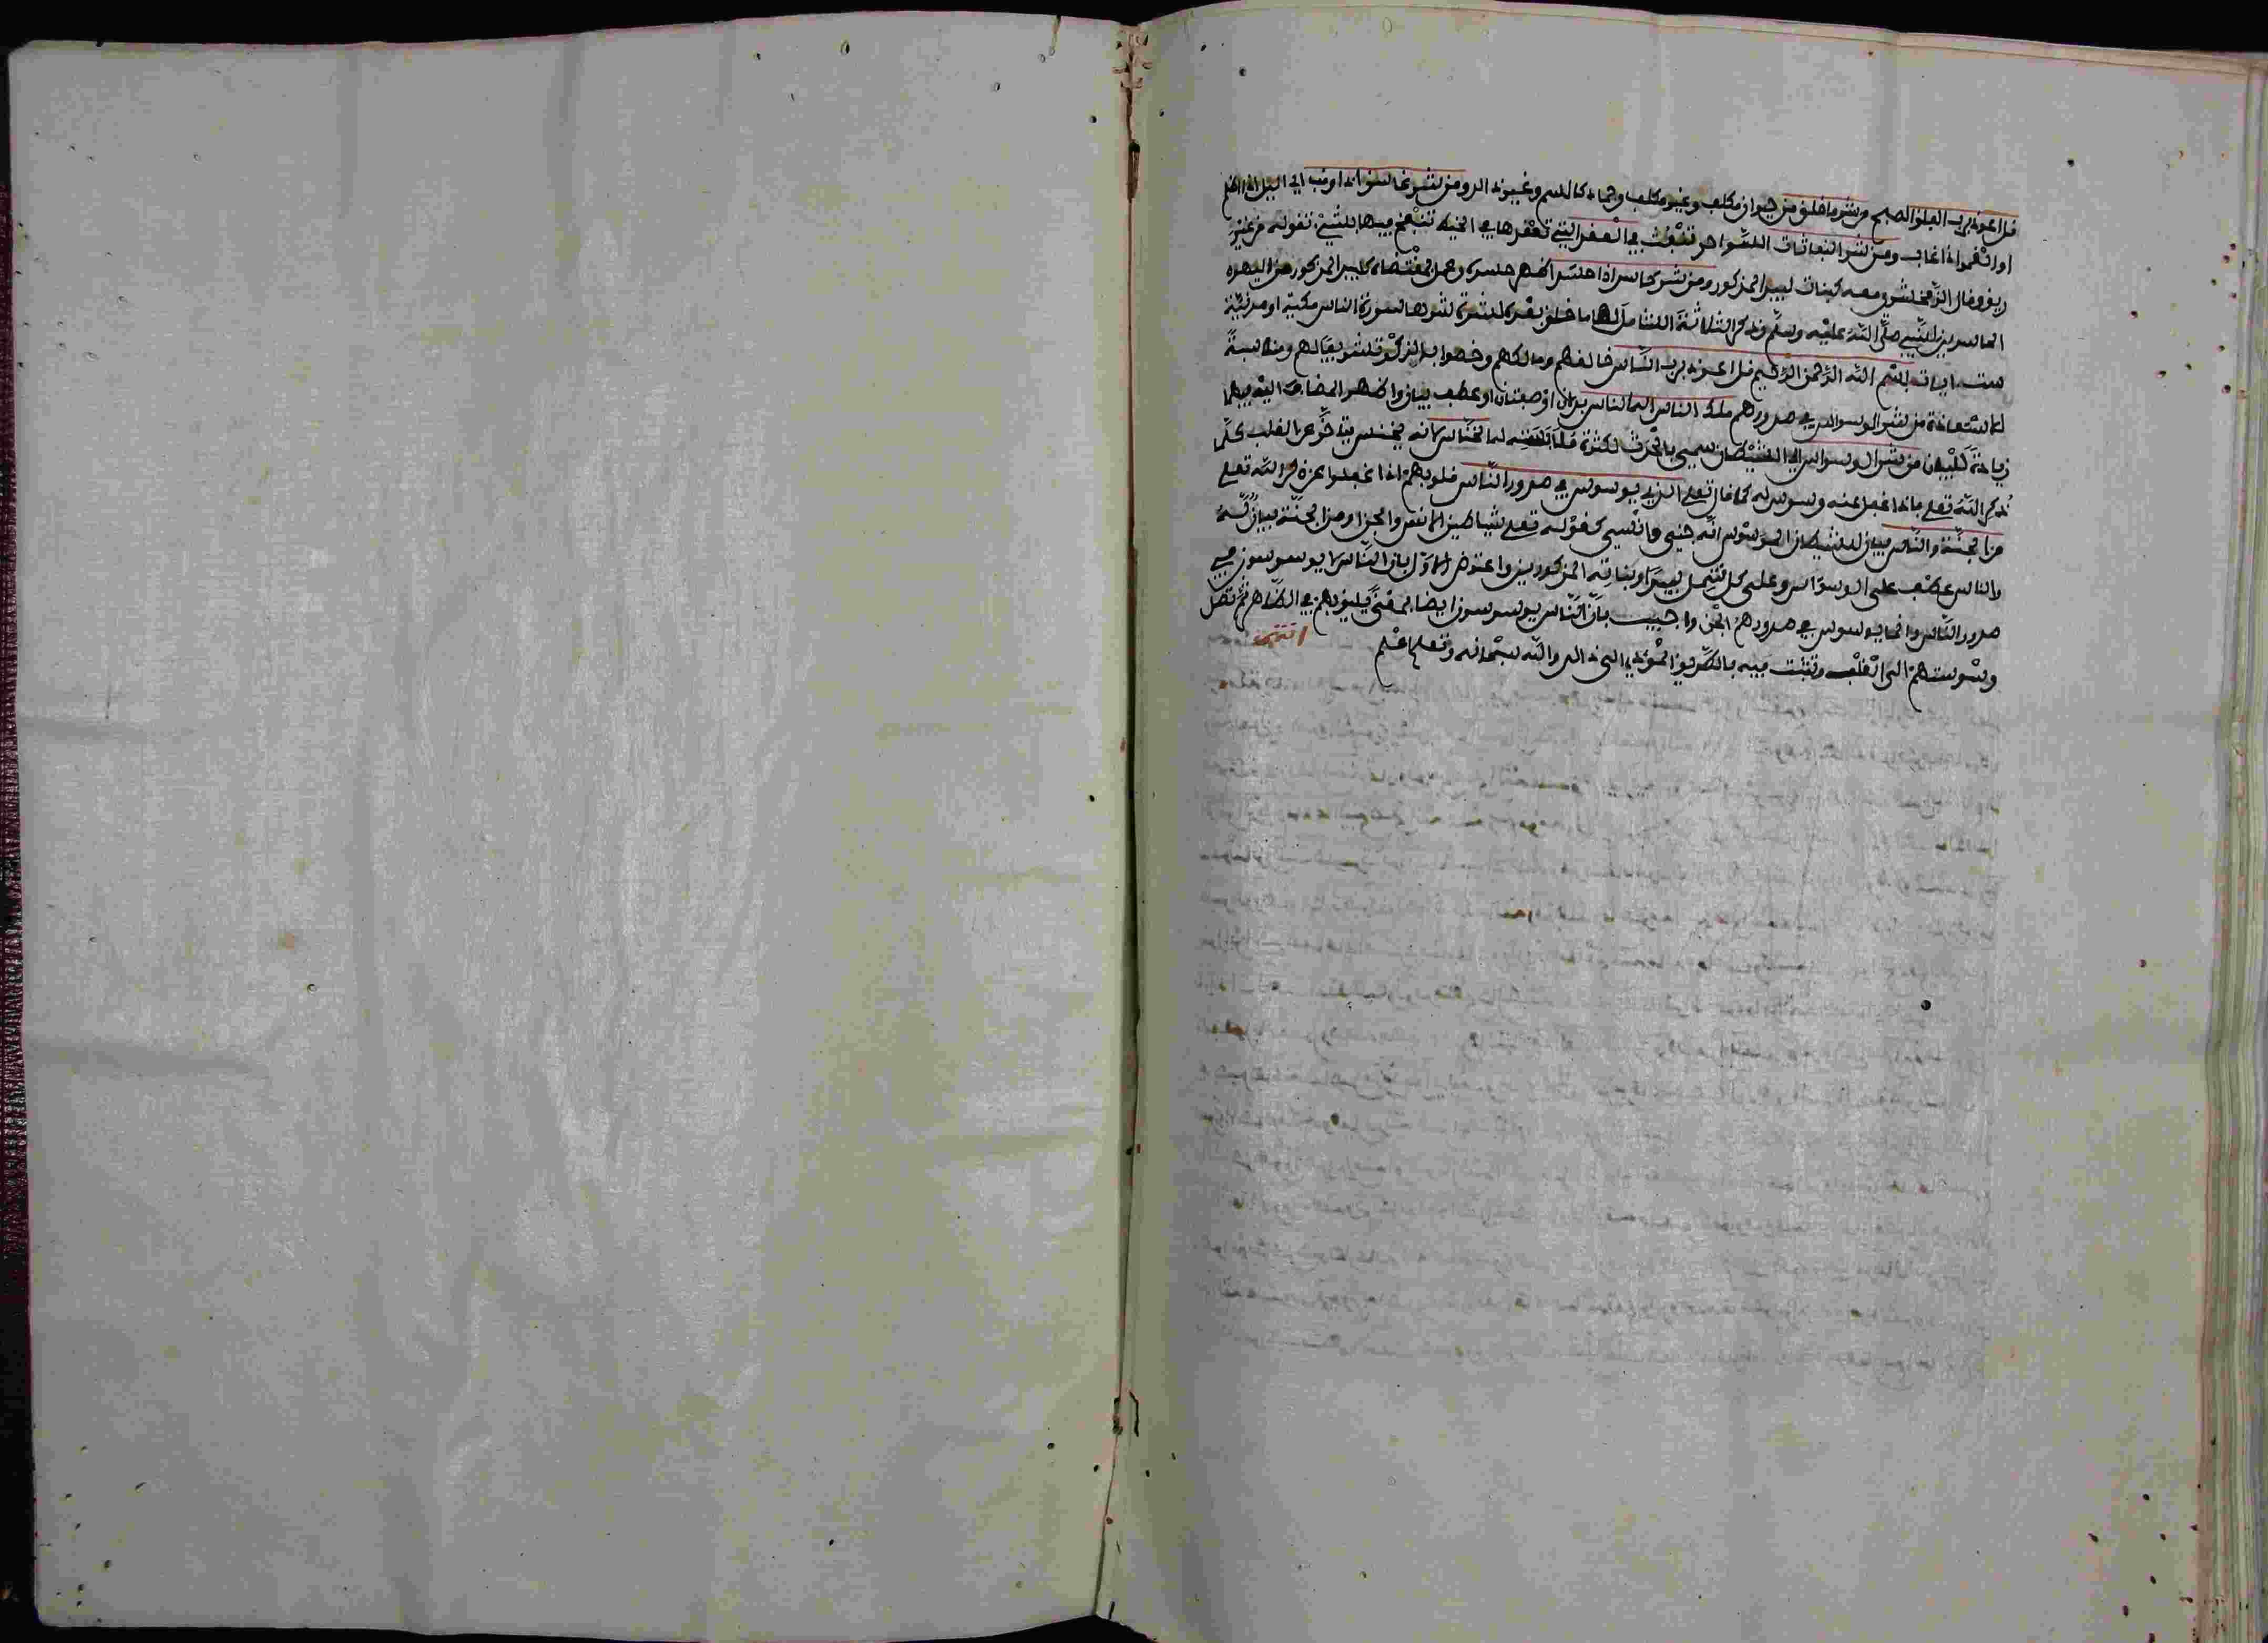 قل اعوذ برب الفلق الصبح من شر ما خلق من حيوان مكلف وغير مكلف وجماد كالسم وغير ذالك ومن شر غاسق اذا وقب اي اليل اذا اظلم
او القمر اذا غاب ومن شر النفاثات السواحر تنفث في العقد التي تعقدها في الخيط تنفخ فيها بشيء تقوله من غير
ريق وقال الزمخشري معه كبنات لبيد المذكور ومن شر حاسد اذا حسد اظهر حسده وعمل بمقتضاه كلبيد المذكور من اليهود
الحاسدين للنبي صلى الله عليه وسلم وذكر الثلاثة الشامل لها ما خلق بعده لشدة شرها سورة الناس مكية او مدنية
ست ءايات بسم الله الرحمن الرحيم قل اعوذ برب الناس خالقهم ومالكهم وخصوا بالذكر تشريفا لهم ومناسبة
للاستعاذة من شر الوسواس في صدورهم ملك الناس اله الناس بدلان او صفتان او عطف بيان واظهر المضاف اليه فيهما
زيادة للبيان من شر الوسواس اي الشيطان سمي بالحدث لكثرة ملابسته له الخناس لانه يخنس يتاخر عن القلب كلما
ذكر الله تعلى فاذا غفل عنه وسوس له كما قال تعلى الذي يوسوس في صدور الناس قلوبهم اذا غفلوا عن ذكر الله تعلى
من الجنة والناس بيان للشيطان الموسوس انه جني وانسي كقوله تعلى شياطين الانس والجن او من الجنة بيان له
والناس عطف على الوسواس وعلى كل شمل لبيدا وبناته المذكورين واعترض الاول بان الناس لا يوسوسون في
صدور الناس وانما يوسوس في صدورهم الجن واجيب بان الناس يوسوسون ايضا بمعنى يليق بهم في الظاهر ثم تصل
وسوستهم الى القلب وتثبت فيه بالطريق المؤدي الى ذالك والله سبحانه وتعلى اعلم